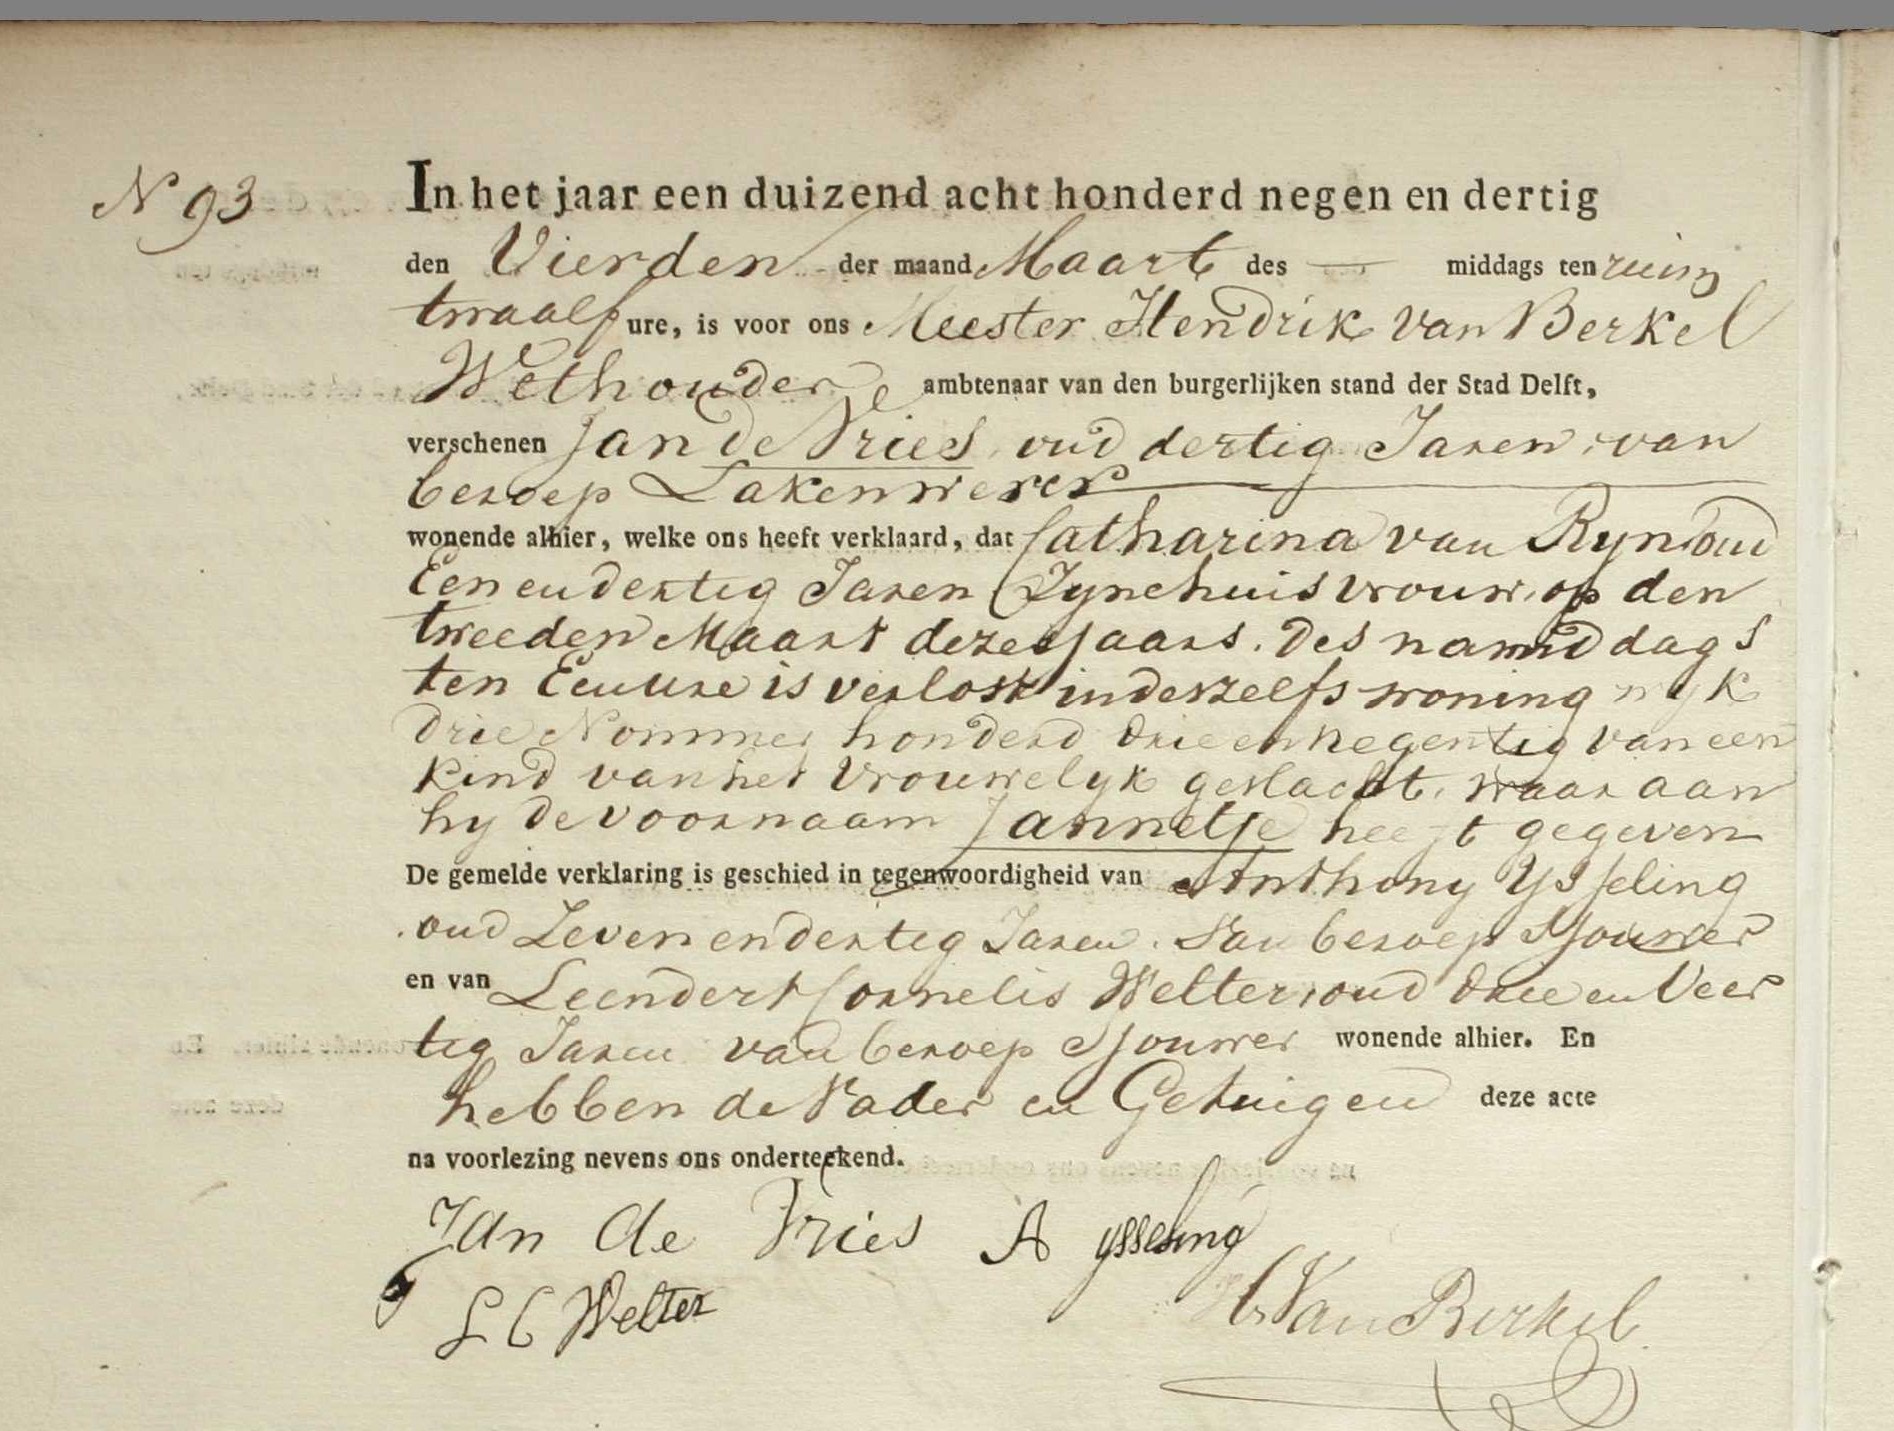 N 93
In het jaar een duizend acht honderd negen en dertig
den Vierden der maand Maart des — middags ten ruim
twaalf ure, is voor ons Meester Hendrik van Berkel
Wethouder ambtenaar van den burgerlijken stand der Stad Delft,
verschenen Jan de Vries oud dertig Jaren, van
beroep Lakenwever
wonende alhier, welke ons heeft verklaard, dat Catharina van Ryn oud
Een en dertig Jaren Zyne huisvrouw, op den
tweeden Maart dezes jaars. des namiddags
ten Een ure is verlost in deszelfs woning wyk
drie Nommer honderd drie en negentig van een
kind van het vrouwelyk geslacht, waar aan
hy de voornaam Jannetje heeft gegeven
De gemelde verklaring is geschied in tegenwoordigheid van Anthony Ysseling
oud Zeven en dertig Jaren. van beroep Sjouwer
en van Leendert Cornelis Welter, oud drie en Veer
tig Jaren van beroep Sjouwer wonende alhier. En
hebben de Vader en Getuigen deze acte
na voorlezing nevens ons onderteekend.
Jan de Vries A ysseling
L C Welter
H. Van Berkel